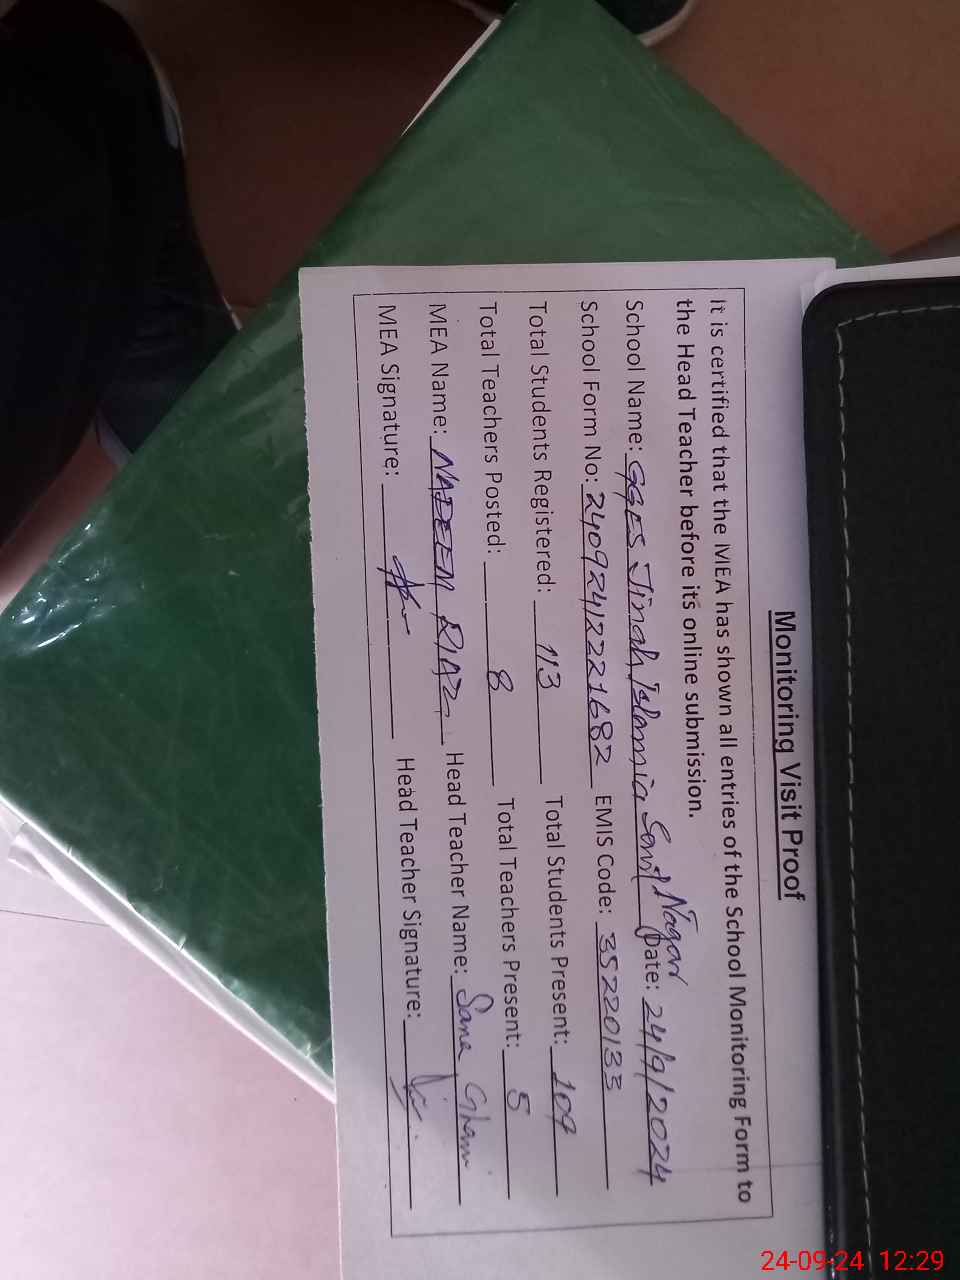 Monitoring Visit Proof
It is certified that the MEA has shown all entries of the School Monitoring Form to
the Head Teacher before its online submission.
School Name: GGES Jinah Islamia Nagar Date: 24/9/2024
School Form No: 24092412221682 EMIS Code: 35220133
Total Students Registered: 113 Total Students Present: 109
Total Teachers Posted: 8 Total Teachers Present: 5
MEA Name: NADEEM RIAZ Head Teacher Name: Sana Ghani
MEA Signature: Head Teacher Signature:
24-09-24 12:29